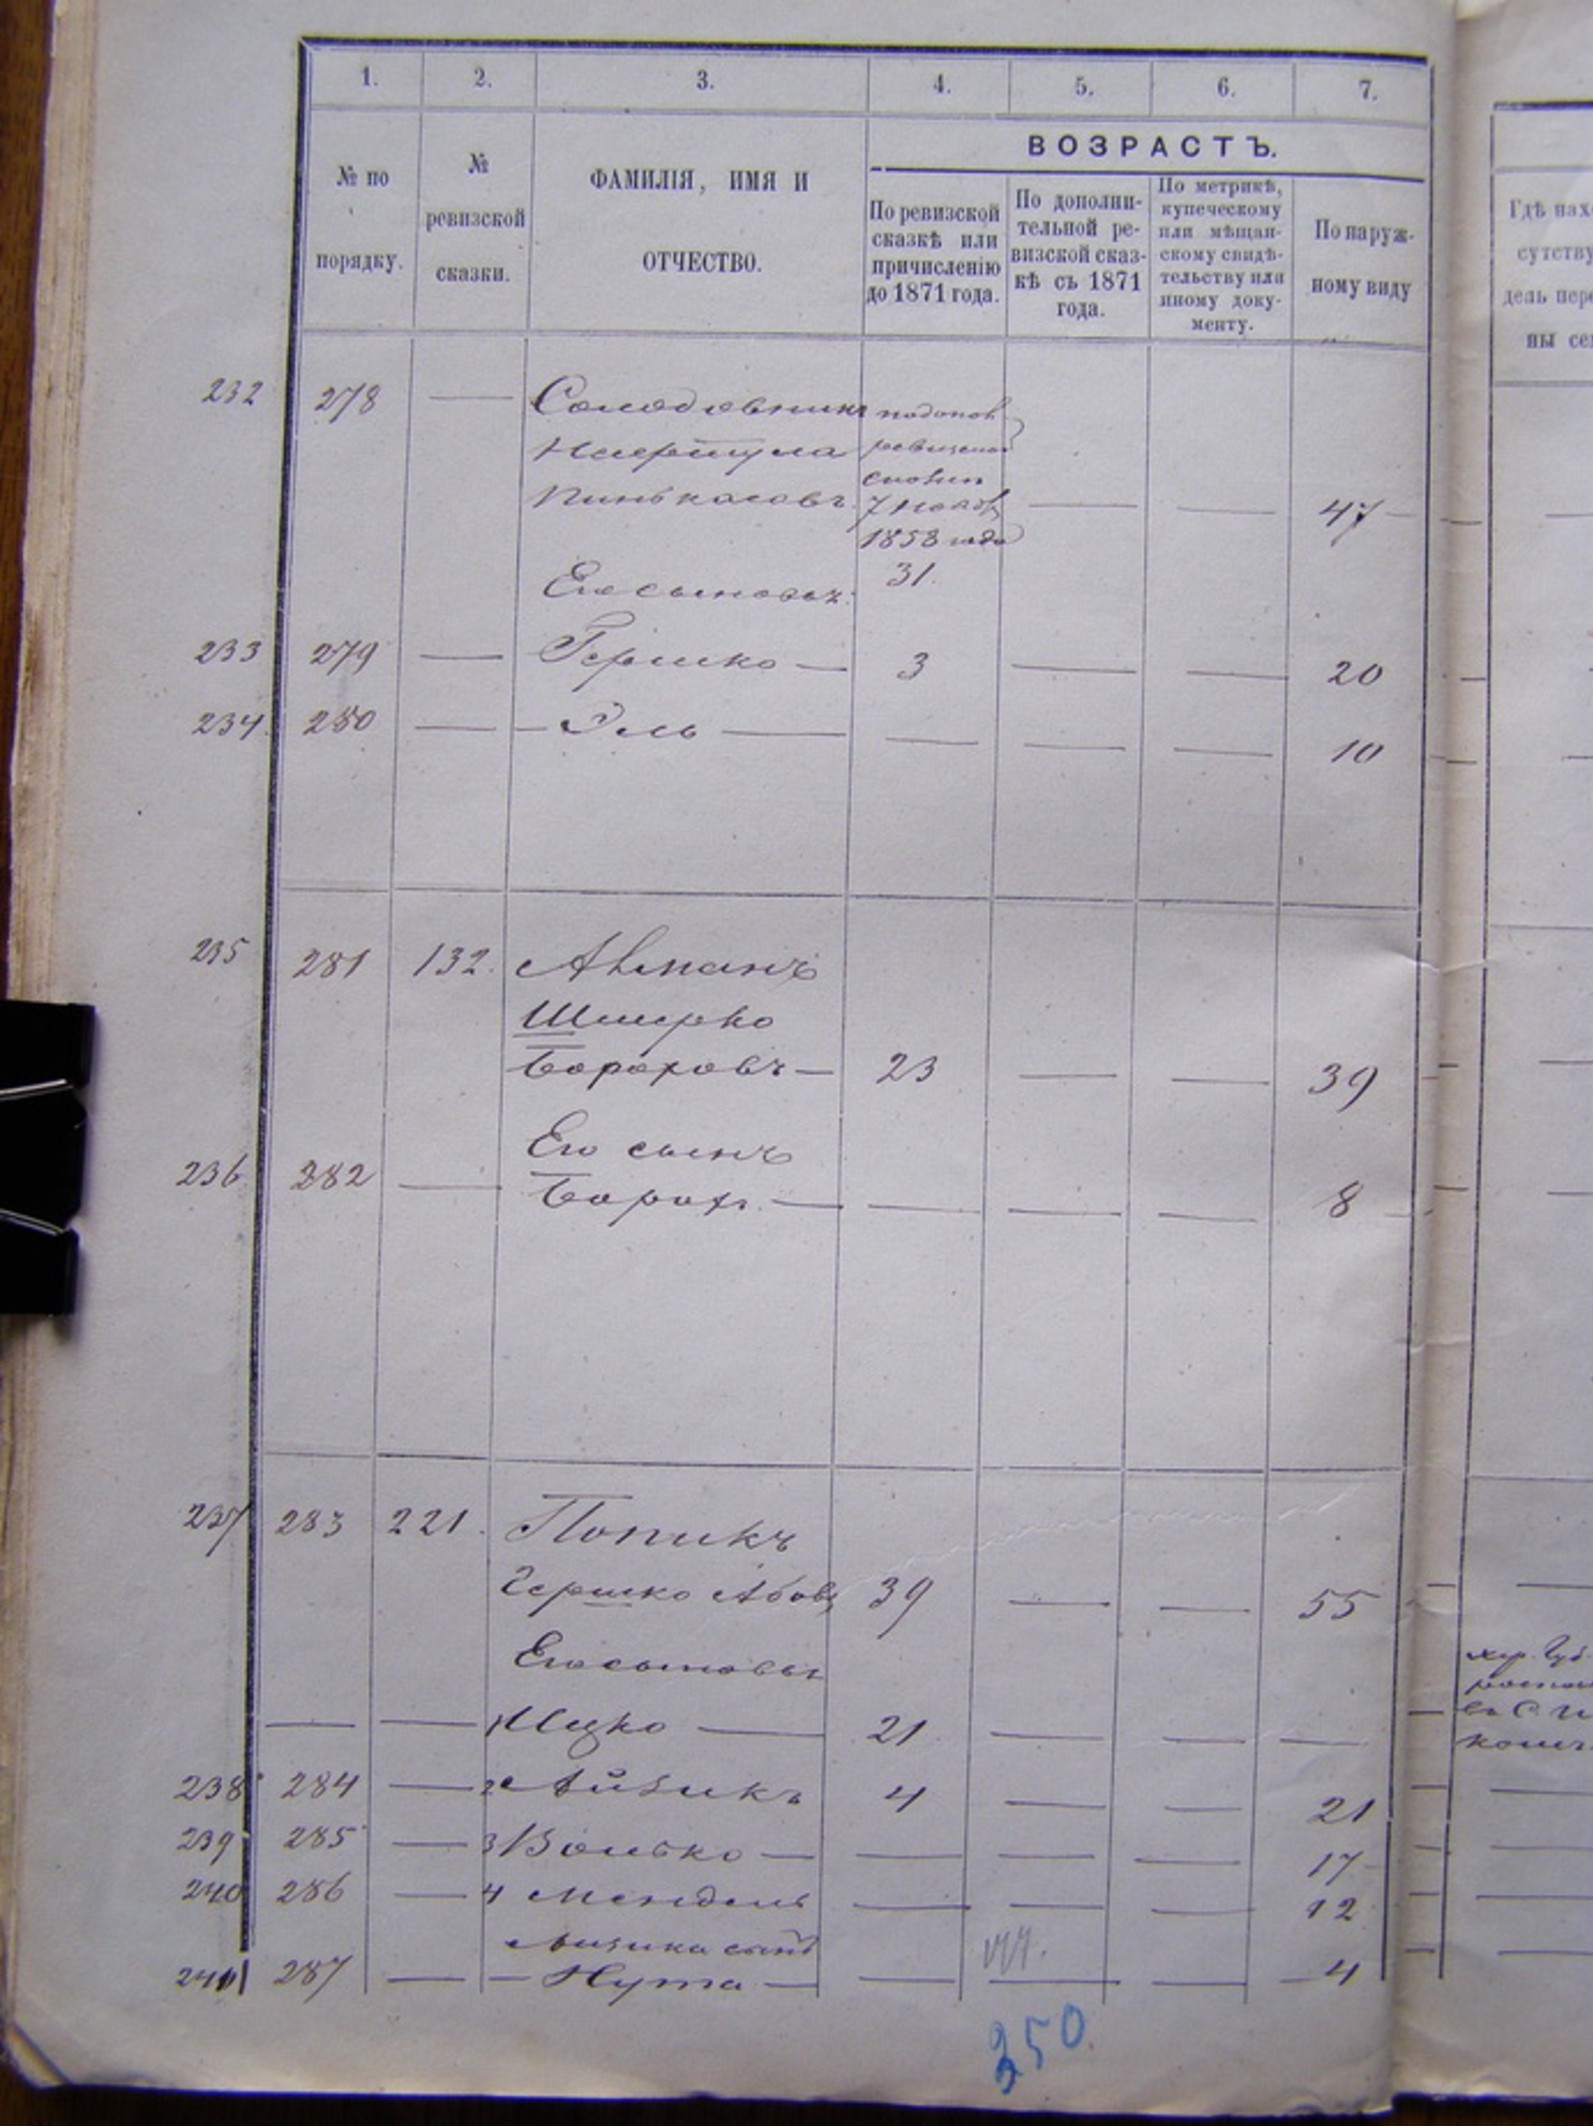 1. 2. 3. 4. 5. 6. 7.
№ по порядку.
№ ревизской сказки.
ФАМИЛІЯ, ИМЯ И ОТЧЕСТВО.
ВОЗРАСТЪ.
По ревизской
сказкѣ или
причисленію
до 1871 года.
По дополни-
тельной ре-
визской сказ-
кѣ съ 1871
года.
По метрикѣ,
купеческому
или мѣщан-
скому свидѣ-
тельству или
иному доку-
менту.
По наруж-
ному виду
Гдѣ нах
сутству
дель пер
ны се
232 278 — Солодовникъ
Пинькасовъ
7 нояб
1858 года — — 47
Его сыновья: 31.
233 279 — Гершко — 3 — — 20
234 280 — Эль — — — — 10
235 281 132. Авманъ
Шмерко
Бороховъ — 23 — — 39
Его сынъ
236 282 — Борохъ — — — — 8
237 283 221. Попикъ
Гершко Абов 39 — — 55
Его сыновья
— — 1 Ицко — 21 — — —
238 284 — 2 Айзикъ 4 — — 21
239 285 — 3 Волько — — — — 17
240 286 — 4 Мендель — — — 12
Айзика сынъ
241 287 — Нута — — — — 4
350.